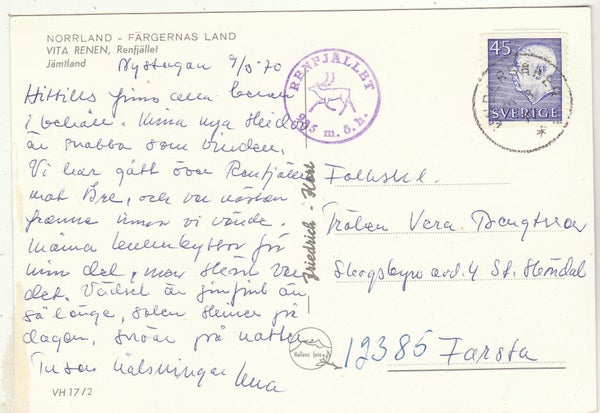 NORRLAND - FÄRGERNAS LAND
VITA RENEN, Renfjället
Jämtland
9/3 70
Hittills finns alla benen
i behåll. Mina nya skidor
är snabba som vinden.
Vi har gått över Renfjället
mot Åre, och var nästan
framme innan vi vände.
för
min del, men skönt var
det. Vädret är jinjint än
så länge, solen skiner på
dagen, snöar på natten
Tusen hälsningar Lena
VH 17/2
RENFJÄLLET
985 m. ö. h.
45
SVERIGE
Friedrich - Hare
Hallens foto
Folkskol.
Fröken Vera Bengtsson
Skogsbyn avd. 4 St. Sköndal
12385 Farsta